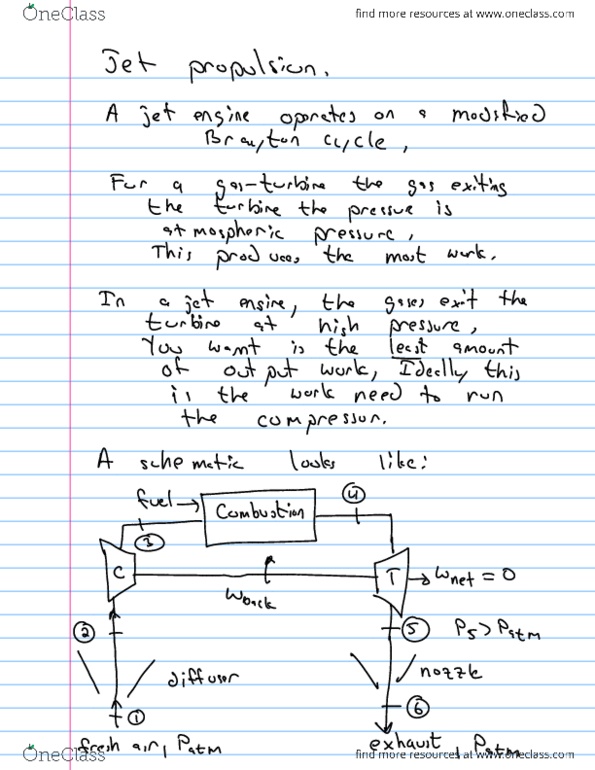 OneClass
find more resources at www.oneclass.com
Jet propulsion.
A jet engine operates on a modified
Brayton cycle,
For a gas-turbine the gas exiting
the turbine the pressure is
atmospheric pressure,
This produces the most work.
In a jet engine, the gases exit the
turbine at high pressure,
You want is the least amount
of output work, Ideally this
is the work need to run
the compressor.
A schematic looks like:
fuel → Combustion
④
③
C
T → Wnet = 0
Wback
②
⑤ P5 > Patm
diffuser
nozzle
①
⑥
fresh air, Patm
exhaust, Patm
OneClass
find more resources at www.oneclass.com